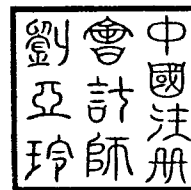 中國注册
會計師
劉亞玲